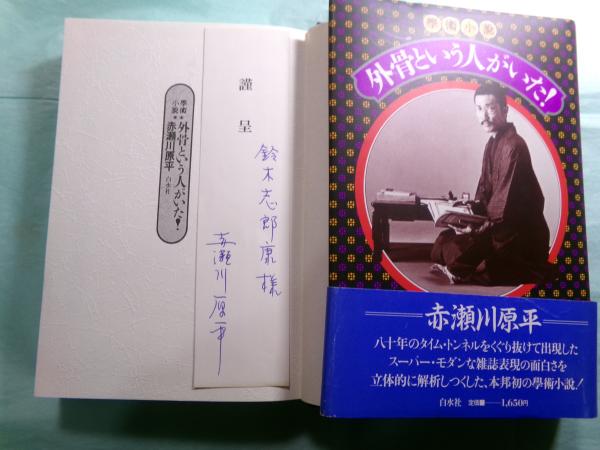 學術小説
外骨という人がいた!
赤瀬川原平
白水社
謹呈
鈴木志郎康様
赤瀬川原平
學術小説
外骨という人がいた!
赤瀬川原平
八十年のタイム・トンネルをくぐり抜けて出現した
スーパー・モダンな雑誌表現の面白さを
立体的に解析しつくした、本邦初の學術小説!
白水社 定価 1,650円